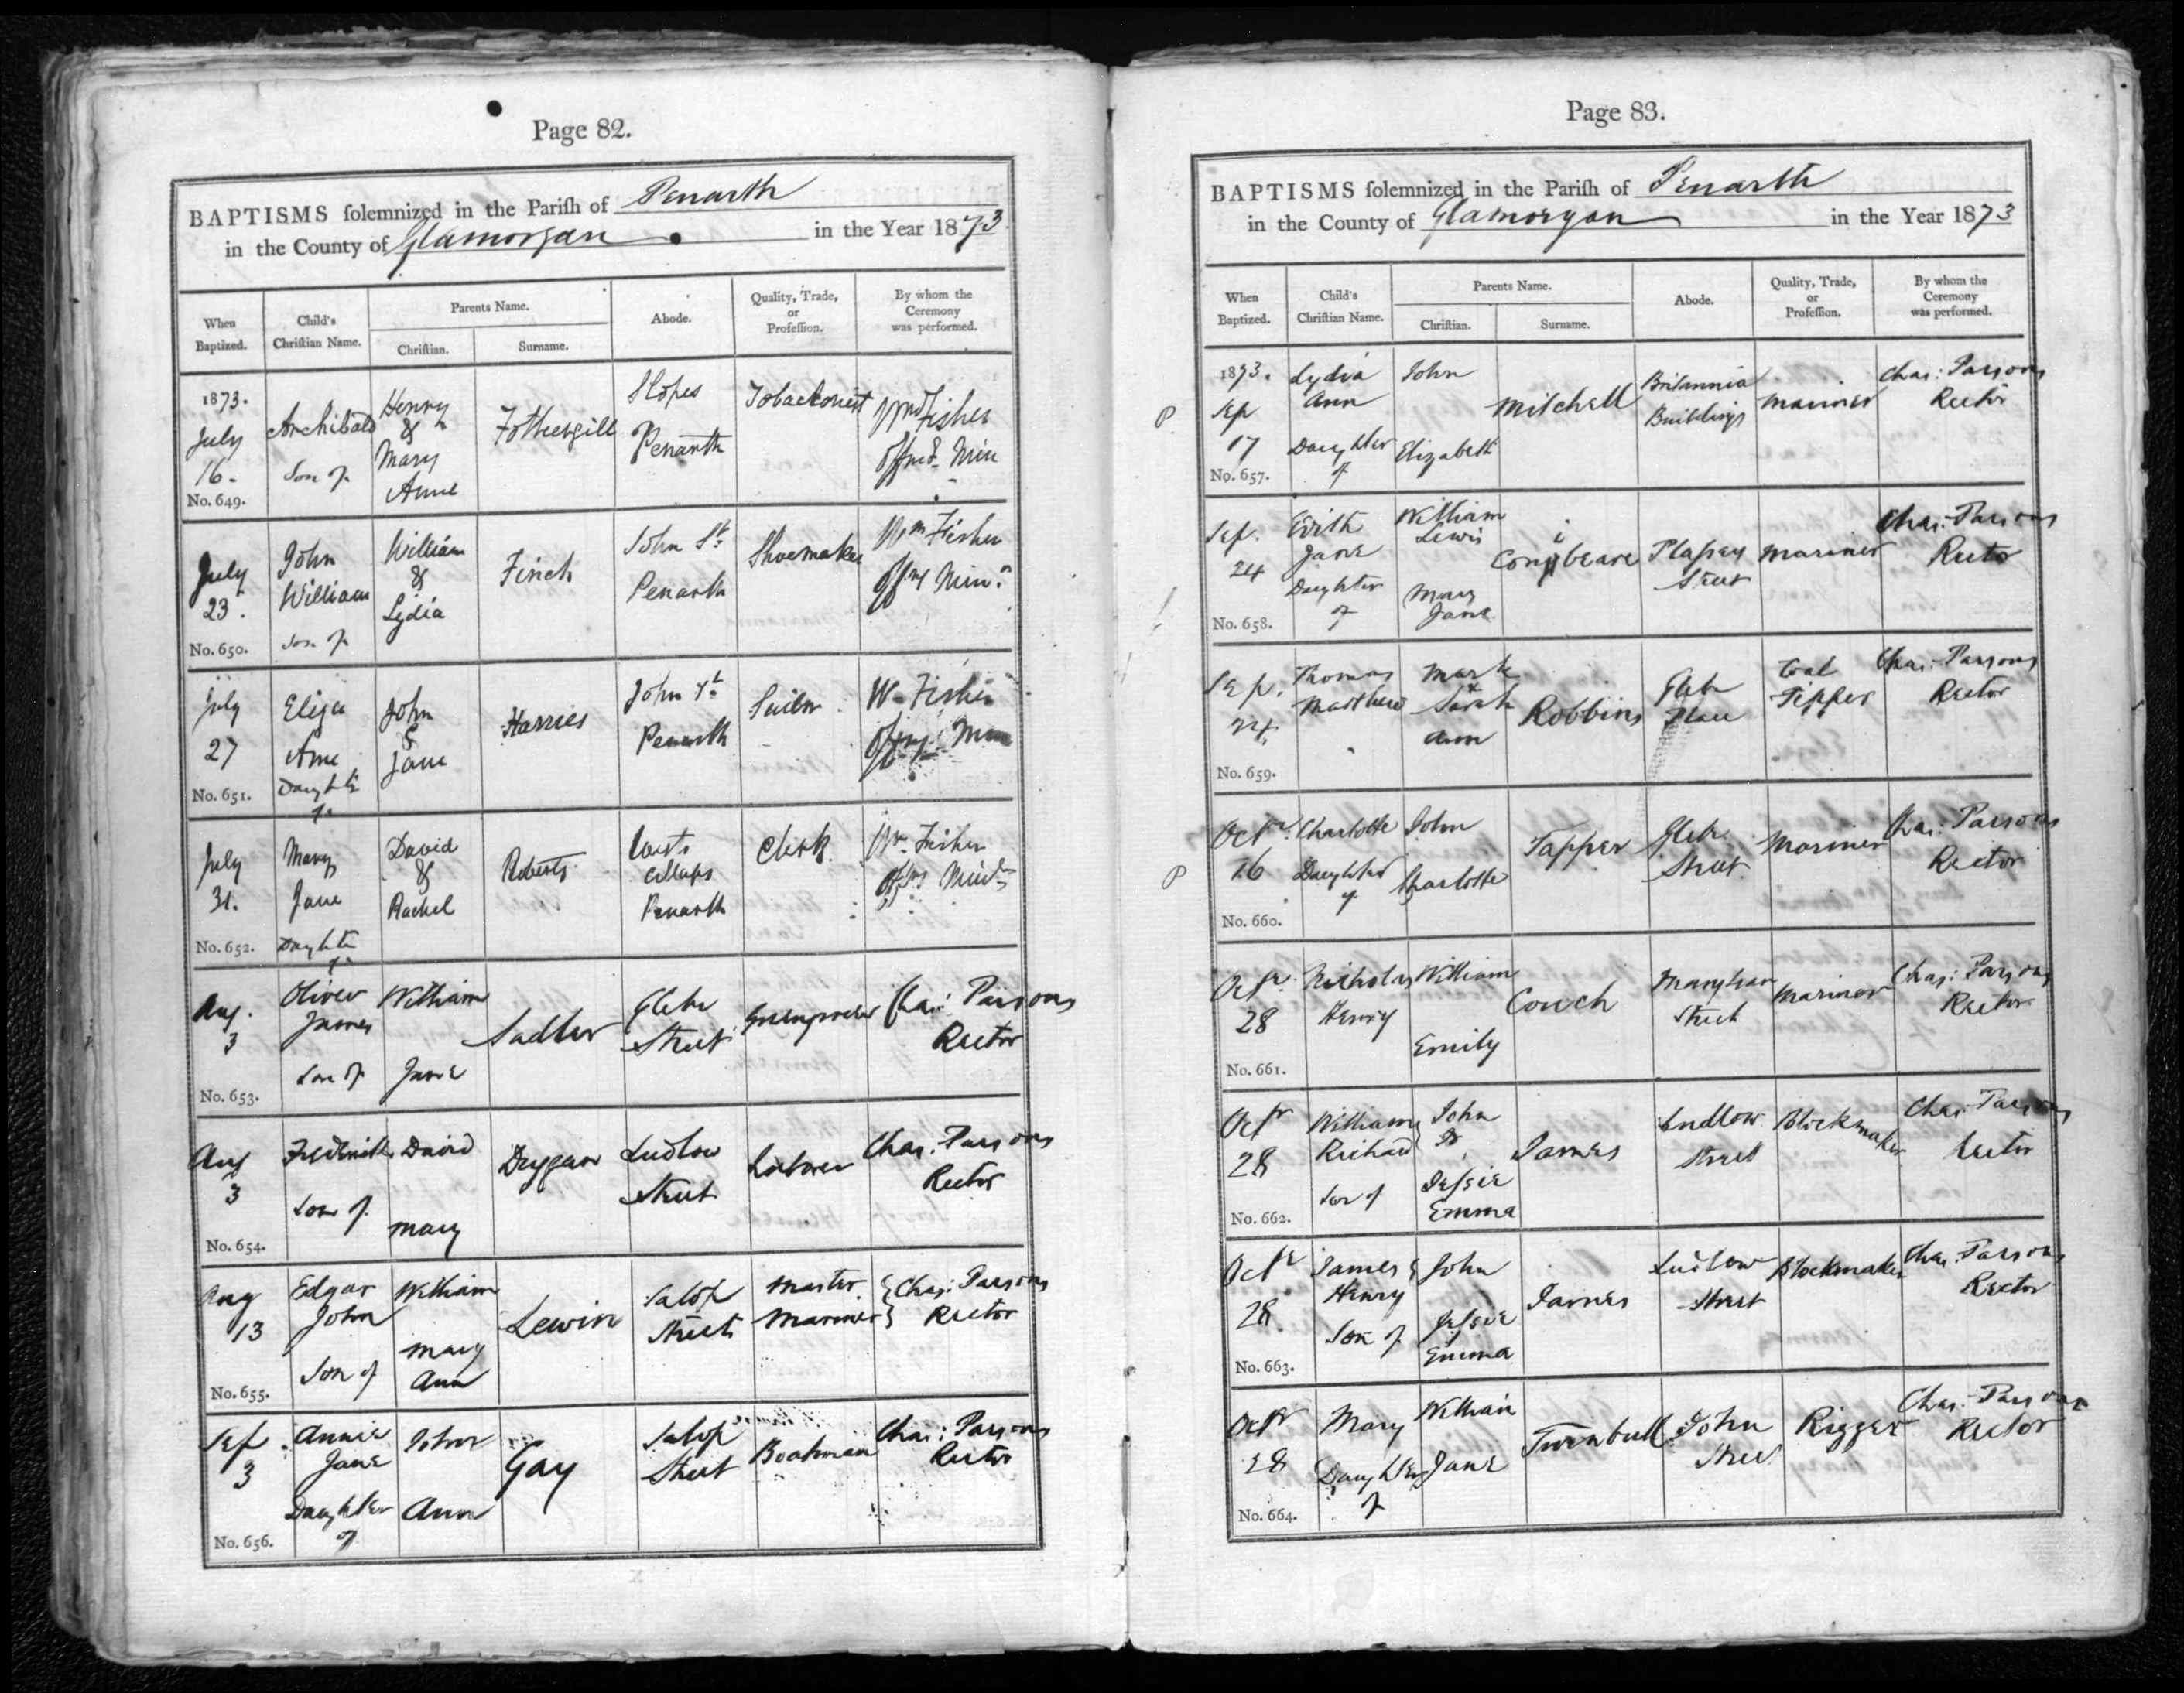 Page 82.
BAPTISMS solemnized in the Parish of Penarth
in the County of Glamorgan in the Year 1873
When Baptized.
Child's Christian Name.
Parents Name.
Christian.
Surname.
Abode.
Quality, Trade, or Profession.
By whom the Ceremony was performed.
1873. July 16. No. 649.
Archibald Son of
Henry & Mary Anne
Fothergill
Slopes Penarth
Tobacconist
Wm Fisher Min
July 23. No. 650.
John William Son of
William & Lydia
Finch
John St. Penarth
Shoemaker
Wm Fisher Min.
July 27 No. 651.
Eliza Ann Daughter of
John & Jane
Harries
John St. Penarth
W. Fisher Min
July 31. No. 652.
Mary Jane Daughter of
David & Rachel
Roberts
Penarth
Clerk
Wm Fisher
Aug. 3 No. 653.
Oliver James Son of
William Jane
Sadler
Glebe Street
Greengrocer
Chas: Parsons Rector
Aug 3 No. 654.
Frederick Son of
David Mary
Duggan
Ludlow Street
Laborer
Chas. Parsons Rector
Aug 13 No. 655.
Edgar John Son of
William Mary Ann
Lewin
Salop Street
Master Mariner
Chas: Parsons Rector
Sep. 3 No. 656.
Annie Jane Daughter of
John Ann
Gay
Salop Street
Boatman
Chas: Parsons Rector
Page 83.
BAPTISMS solemnized in the Parish of Penarth
in the County of Glamorgan in the Year 1873
When Baptized.
Child's Christian Name.
Parents Name.
Christian.
Surname.
Abode.
Quality, Trade, or Profession.
By whom the Ceremony was performed.
P
1873. Sep 17 No. 657.
Lydia Ann Daughter of
John Elizabeth
Mitchell
Britannia Buildings
Mariner
Chas: Parsons Rector
Sep. 24 No. 658.
Edith Jane Daughter of
William Lewis Mary Jane
Conibeare
Plassey Street
Mariner
Chas: Parsons Rector
Sep. 24. No. 659.
Thomas Matthew
Mark & Sarah Ann
Robbins
Glebe Place
Coal Tipper
Chas: Parsons Rector
P
Octr. 16 No. 660.
Charlotte Daughter of
John Charlotte
Tapper
Glebe Street
Mariner
Chas: Parsons Rector
Octr. 28 No. 661.
Nicholas Henry
William Emily
Couch
Street
Mariner
Chas: Parsons Rector
Octr 28 No. 662.
William Richard Son of
John Jessie Emma
James
Ludlow Street
Blockmaker
Chas: Parsons Rector
Octr 28. No. 663.
James Henry Son of
John Jessie Emma
James
Ludlow Street
Blockmaker
Chas: Parsons Rector
Octr 28 No. 664.
Mary Daughter of
William Jane
Turnbull
John Street
Rigger
Chas: Parsons Rector